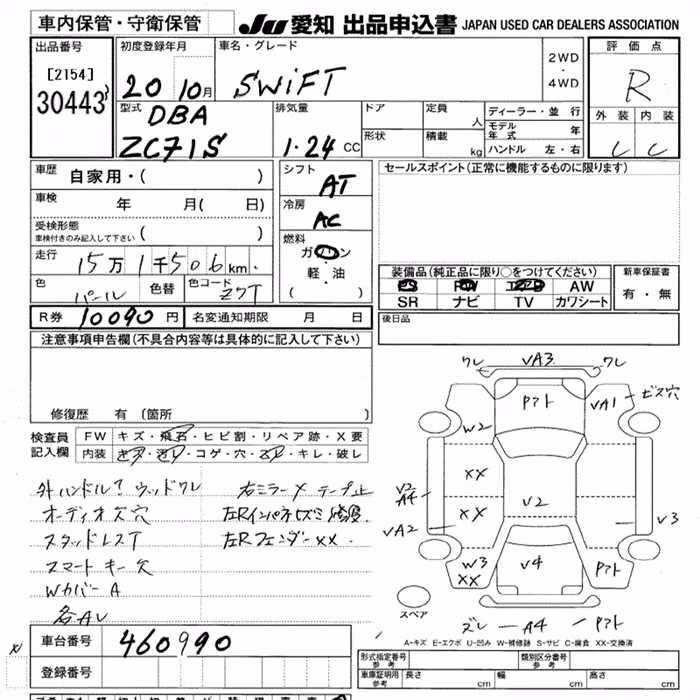 車内保管・守衛保管
JU 愛知 出品申込書 JAPAN USED CAR DEALERS ASSOCIATION
出品番号
[2154]
30443
初度登録年月
20 10月
車名・グレード
SWiFT
2WD
・
4WD
評価点
R
外装 内装
C C
型式
DBA
ZC71S
排気量
1.24 CC
ドア
定員 人
形状
積載 kg
ディーラー・並行
モデル年式 年
ハンドル 左・右
車歴 自家用・( )
車検 年 月( 日)
受検形態
車検付きのみ記入して下さい ( )
走行 15万1千506km.
色 パール
色替
色コード ZVT
シフト AT
冷房 AC
燃料
ガソリン
・
軽・油
( )
セールスポイント(正常に機能するものに限ります)
装備品(純正品に限り○をつけてください)
PS PW エアB AW
SR ナビ TV カワシート
新車保証書
有・無
後日品
R券 10090円
名変通知期限 月 日
注意事項申告欄(不具合内容等は具体的に記入して下さい)
修復歴 有(箇所 )
検査員記入欄
FW キズ・飛石・ヒビ割・リペア跡・X要
内装 キズ・汚レ・コゲ・穴・スレ・キレ・破レ
外ハンドル? ウッドワレ
オーディオ欠穴
スタッドレスT
スマートキー欠
WカバーA
各AU
右ミラーX テープ止
左RインパネヒズミX
左Rフェンダーxx.
ワレ VA3 ワレ
Pアト
VA1
ビス穴
W2
XX
XX
V2
V2
A4
VA2
V3
W3
XX
V4
Pアト
スペア
ズレ A4 Pアト
A-キズ E-エクボ U-凹み W-補修跡 S-サビ C-腐食 XX-交換済
車台番号 460990
登録番号
型式指定番号
参考
類別区分番号
参考
車庫証明用
参考
長さ cm
幅 cm
高さ cm